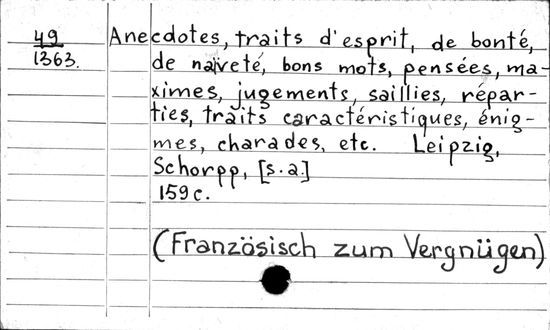 49 Anecdotes, traits d'esprit, de bonté,
1363. de naiveté, bons mots, pensées, ma-
ximes, jugements, saillies, répar-
ties, traits caractéristiques, énig-
mes, charades, etc. Leipzig,
Schorpp, [s.a.]
159 c.
(Französisch zum Vergnügen)